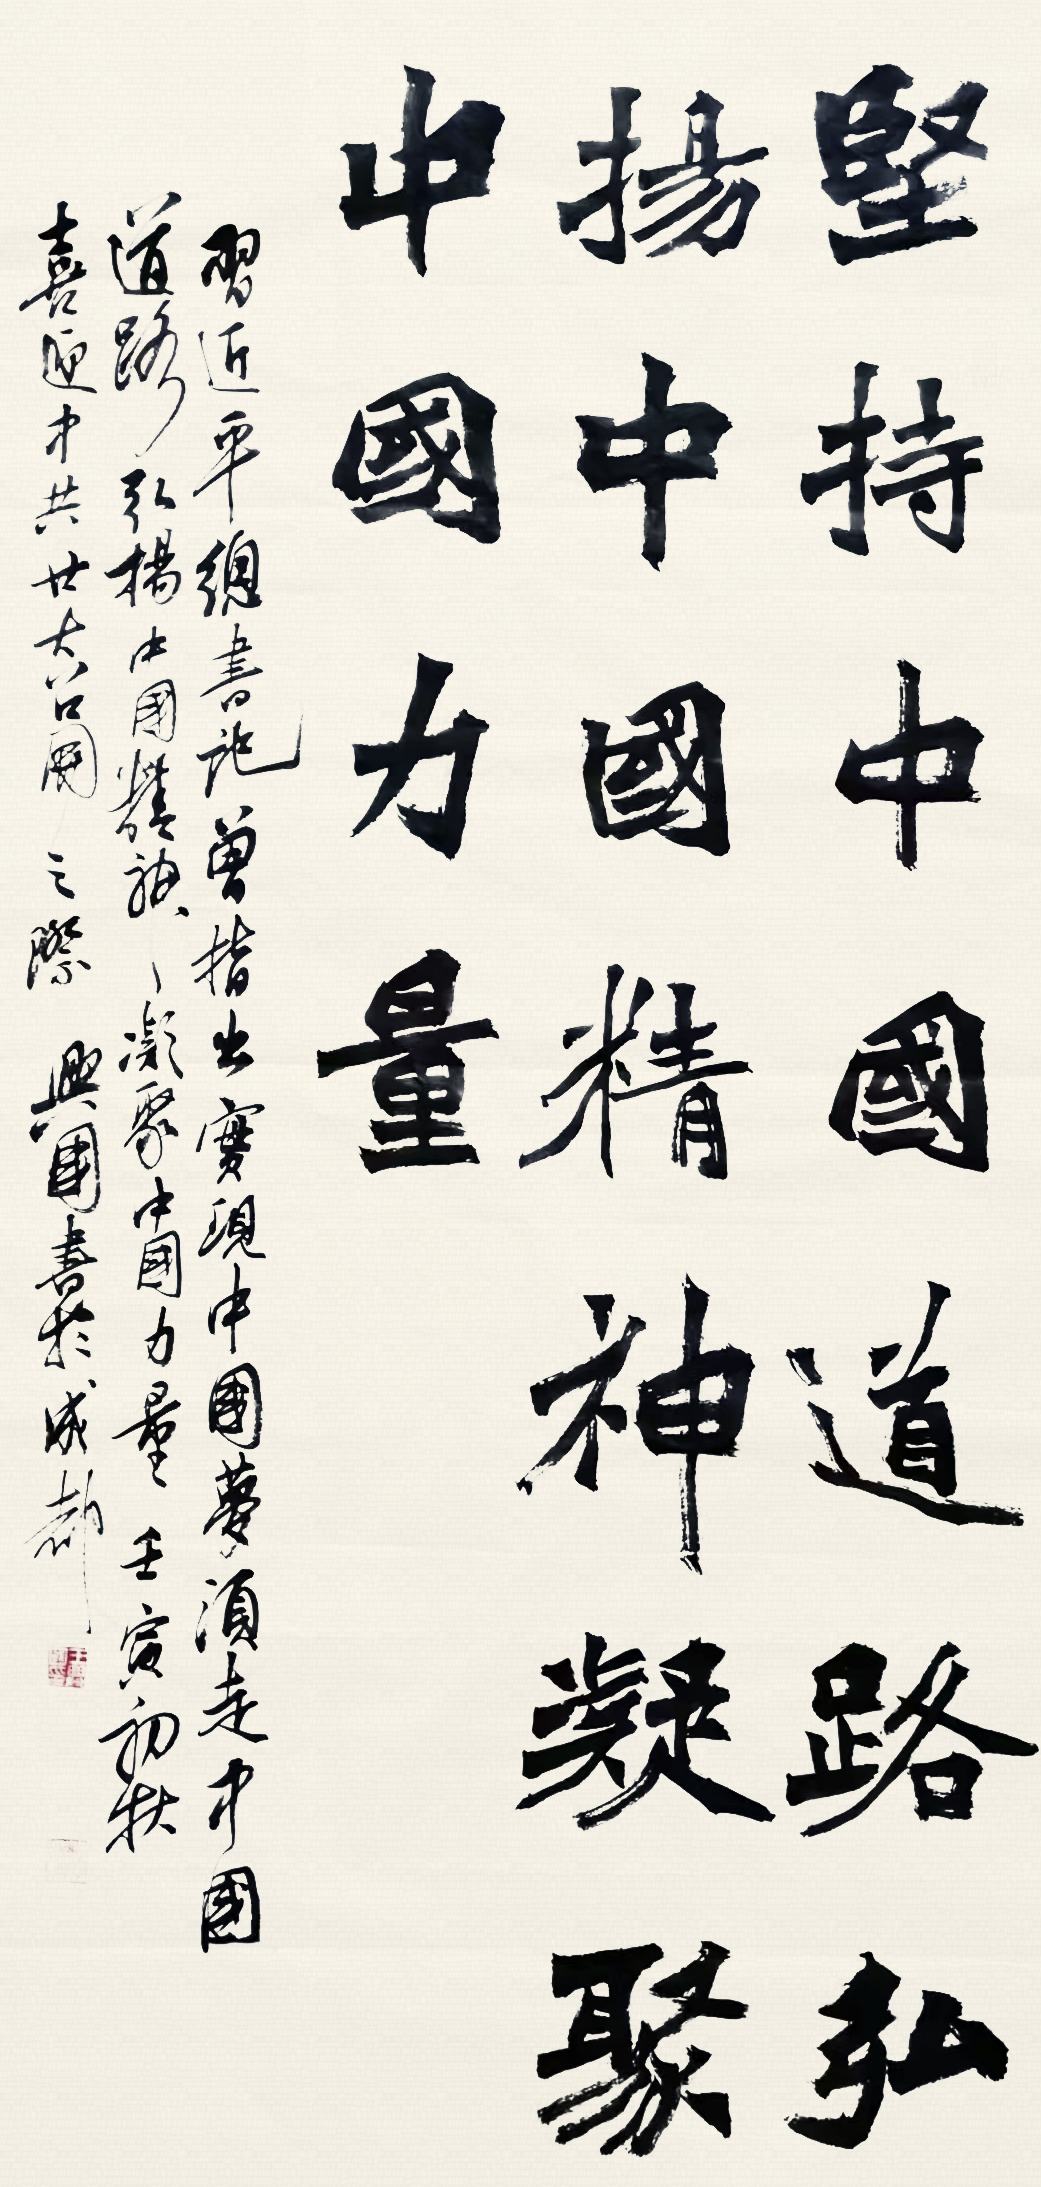 堅持中國道路弘
揚中國精神凝聚
中國力量
習近平總書記曾指出實現中國夢須走中國
道路弘揚中國精神凝聚中國力量壬寅初秋
喜迎中共廿大召開之際興國書於成都